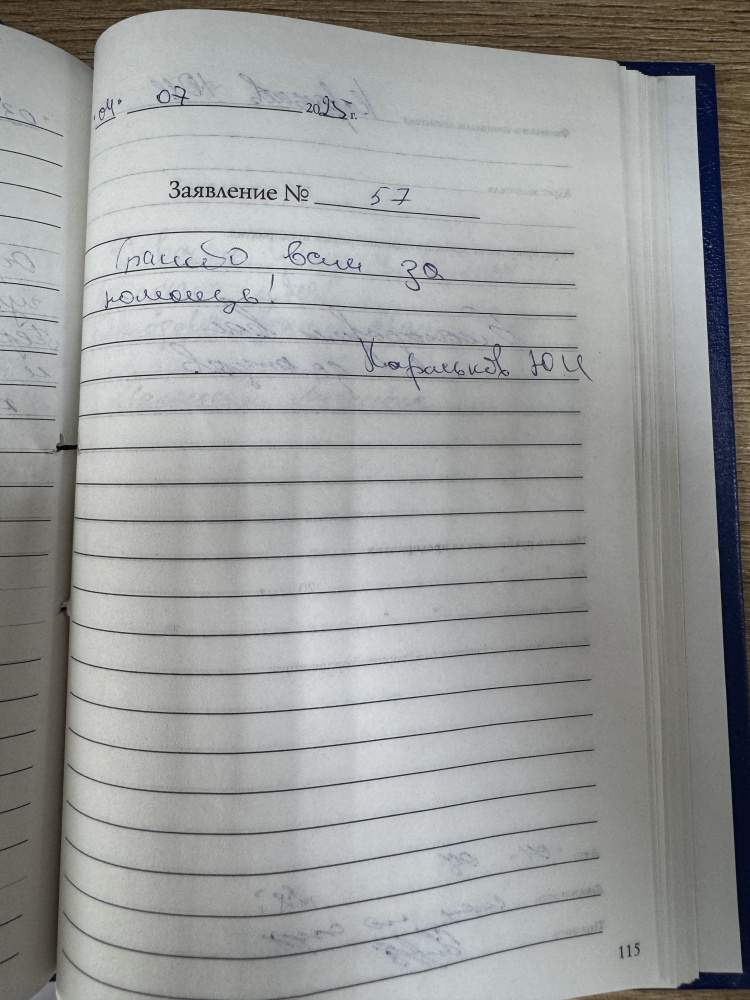 "04" 07 2025 г.
Заявление № 57
Спасибо вам за
помощь!
Харьков Ю И
115